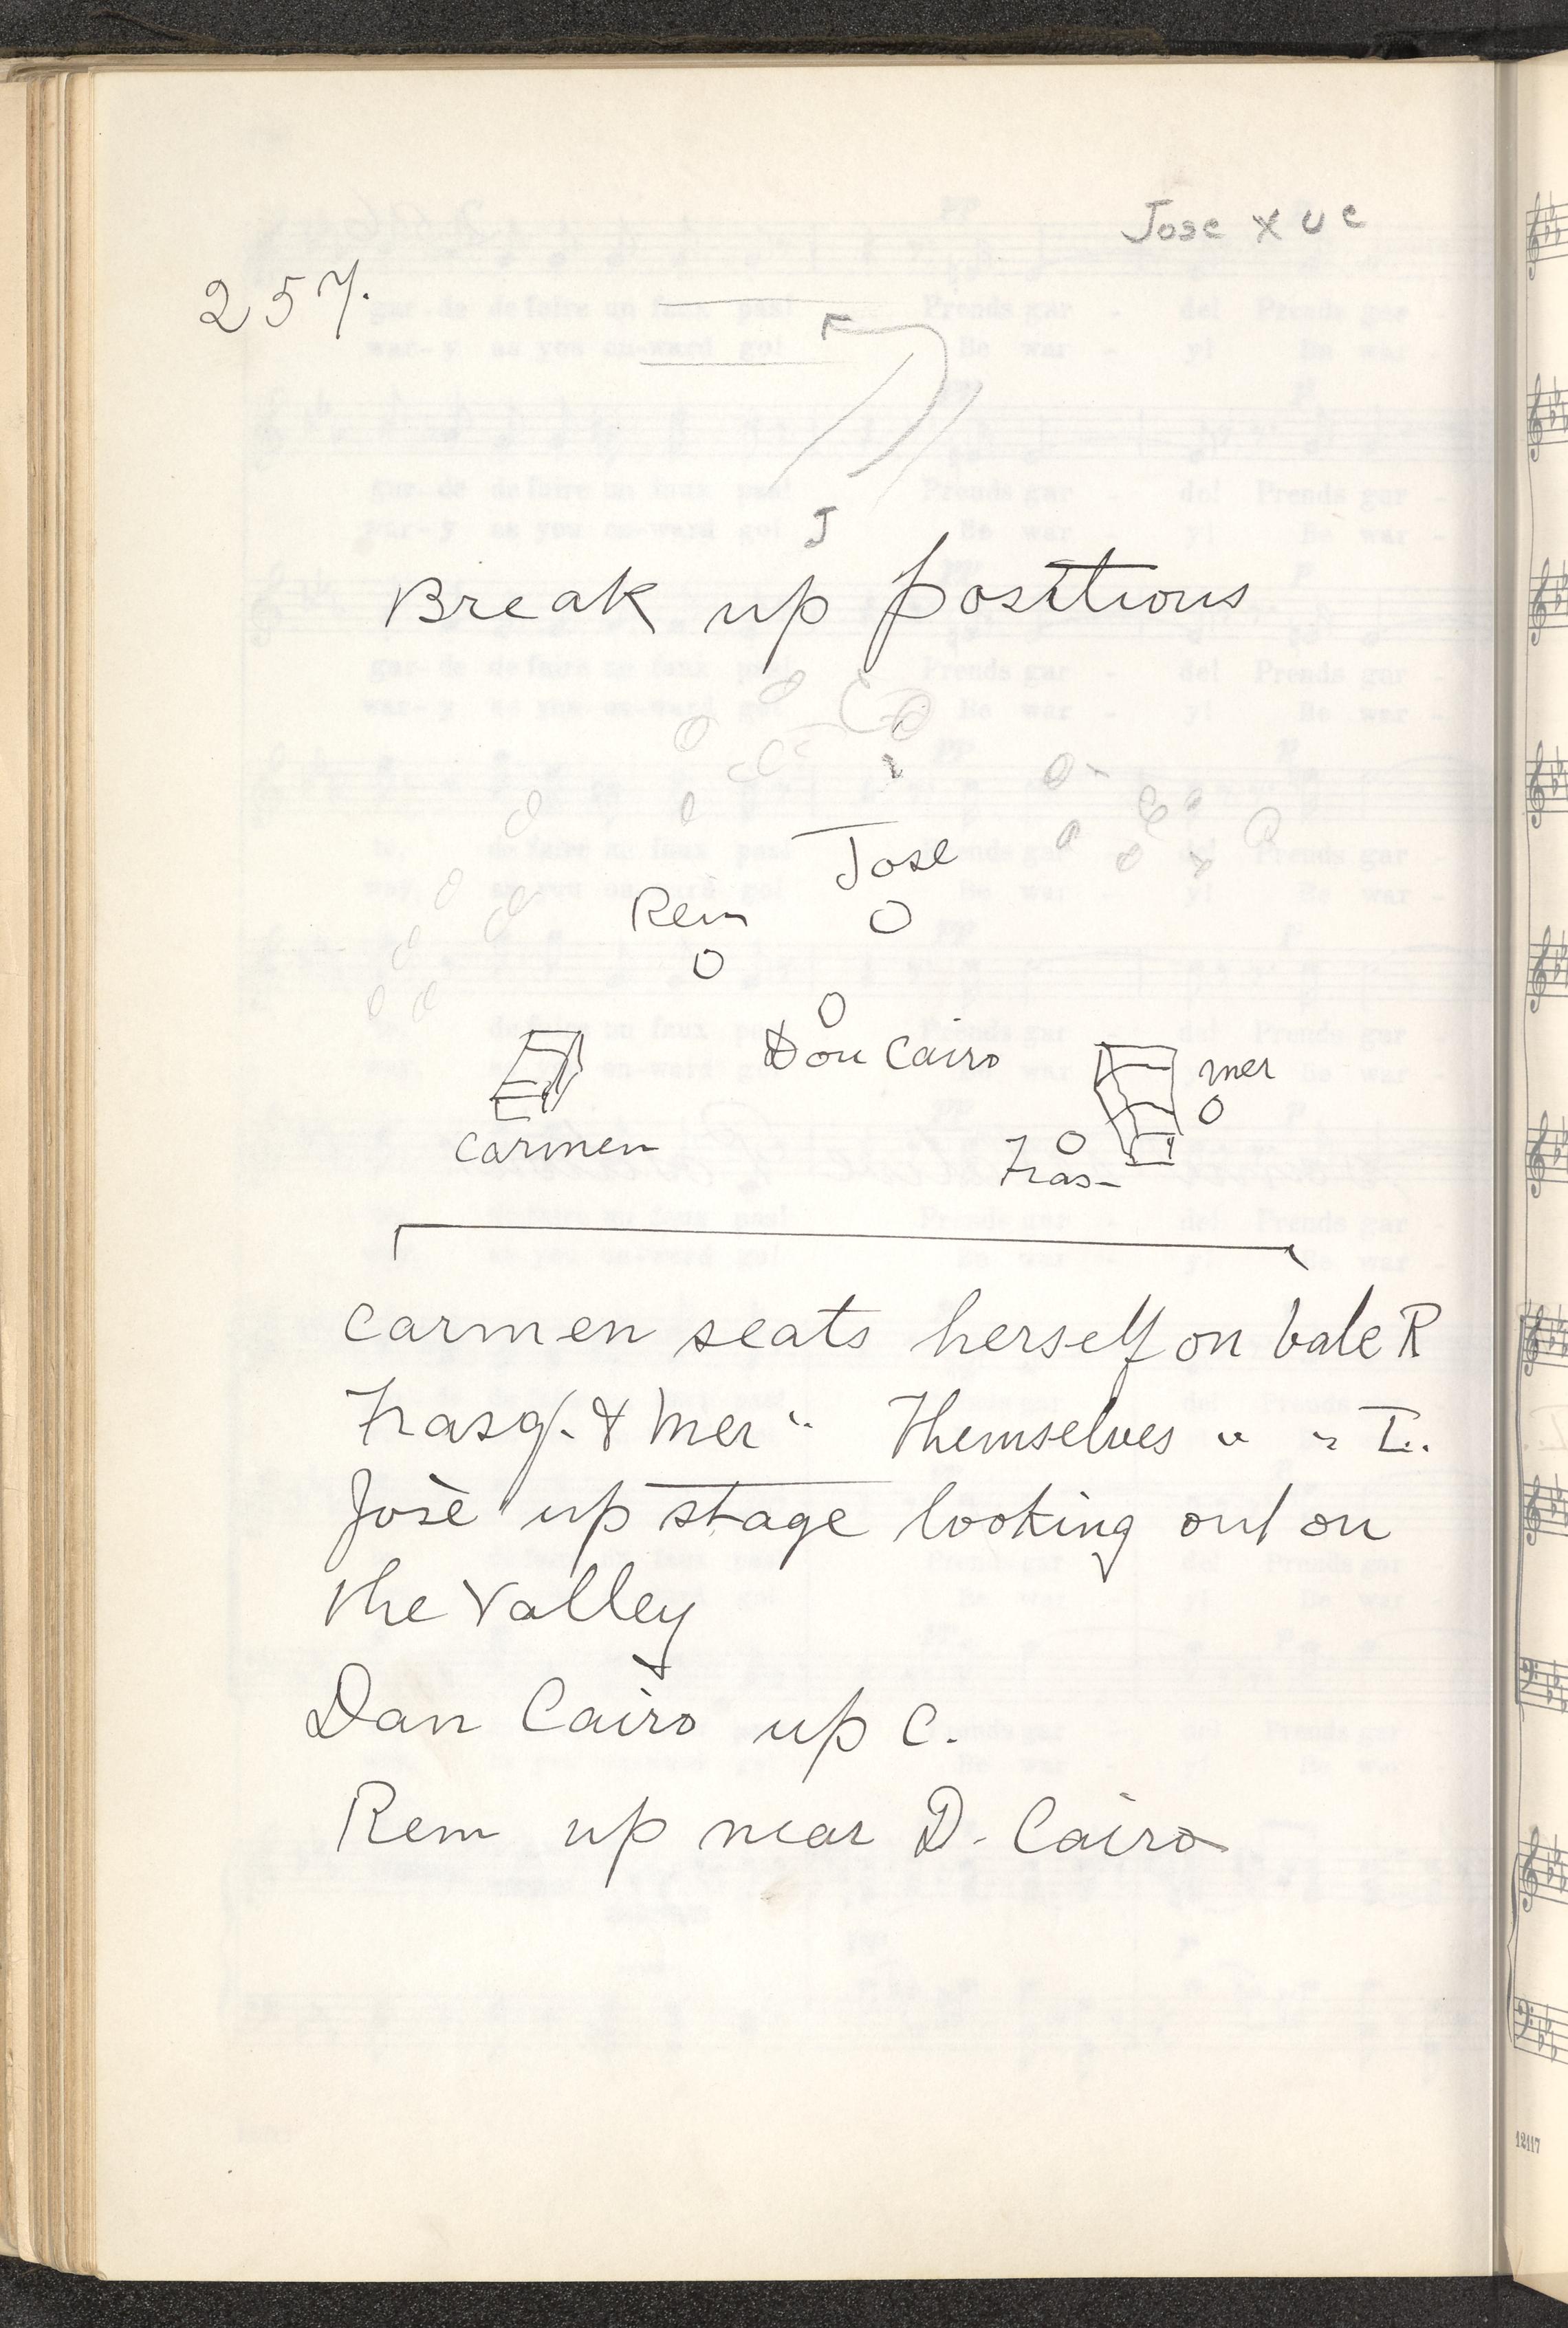 Jose x u c
257.
J
Break up positions
Jose
Rem
Don Cairo
mer
Carmen
Fras-
Carmen seats herself on bale R
Frasq. & Mer " Themselves " " L.
José up stage looking out on
the valley
Dan Cairo up C.
Rem up near D. Cairo
12117